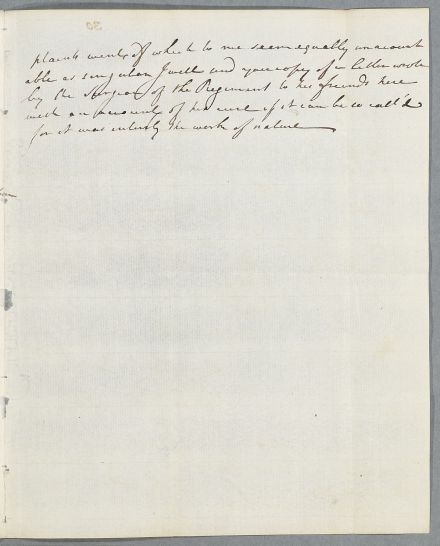 plaints went off which to me seem equally unaccount
able as singular I will send you copy of a letter wrote
by the Surgeon of the Regiment to his friends here
with an account of his cure if it can be so call'd
for it was entirely the work of nature